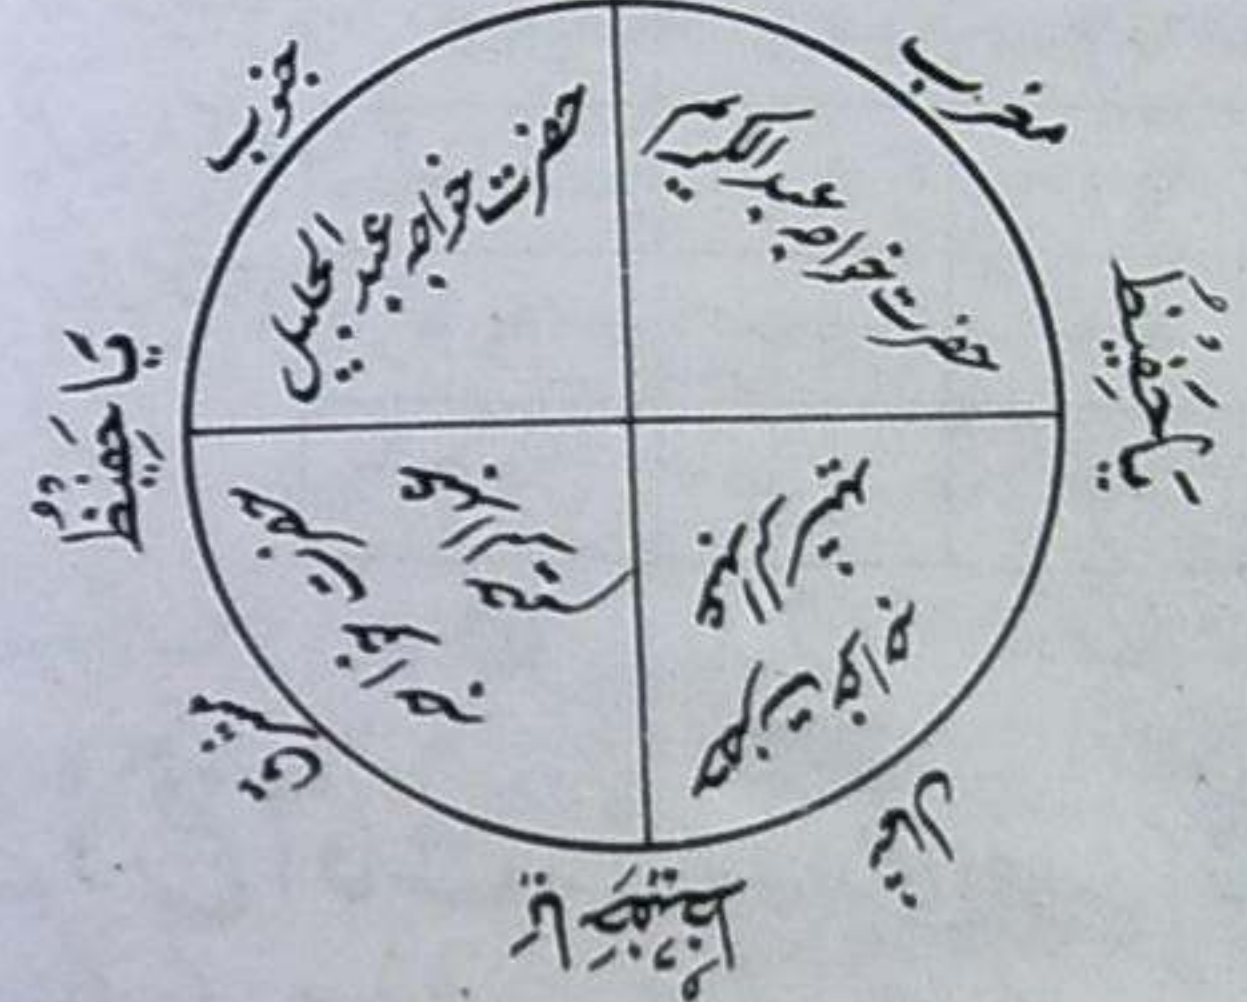 جنوب
مغرب
حضرت خواجہ عبد الجلیل
حضرت خواجہ عبد الکریم
یَا حَفِیْظُ
یَا حَفِیْظُ
حضرت خواجہ
عبد الرحیم
حضرت خواجہ
عبد الرشید
مشرق
شمال